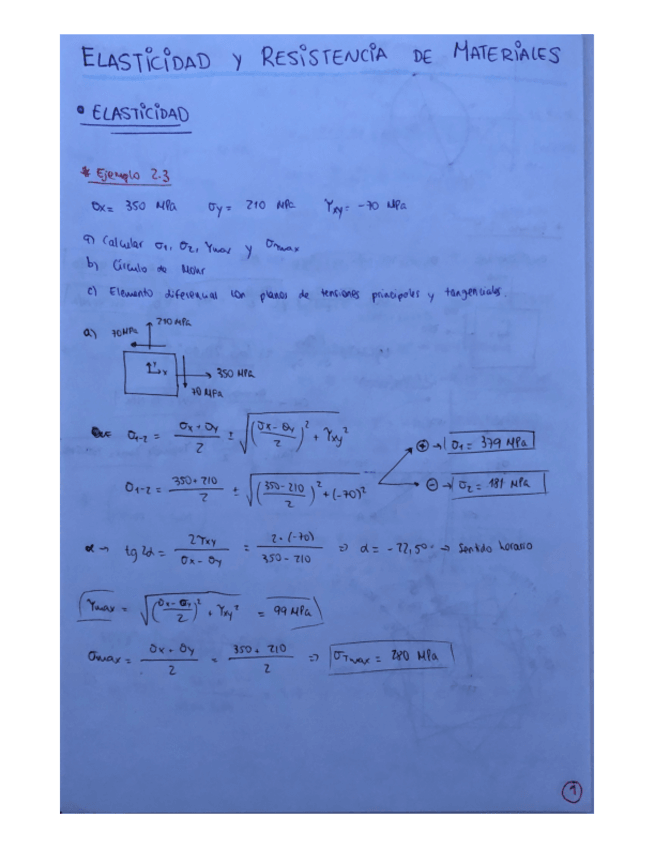 ELASTICIDAD Y RESISTENCIA DE MATERIALES
• ELASTICIDAD
* Ejemplo 2.3
σx = 350 MPa σy = 210 MPa τxy = -70 MPa
a) Calcular σ1, σ2, τmax y σmax
b) Círculo de Mohr
c) Elemento diferencial con planos de tensiones principales y tangenciales.
a) 70 MPa 210 MPa
y x 350 MPa
70 MPa
σ1-2 = (σx + σy)/2 ± √(((σx - σy)/2)² + τxy²)
⊕ → σ1 = 379 MPa
σ1-2 = (350 + 210)/2 ± √(((350 - 210)/2)² + (-70)²)
⊖ → σ2 = 181 MPa
α → tg 2α = 2τxy/(σx - σy) = 2·(-70)/(350 - 210) ⇒ α = -22,5° → Sentido horario
τmax = √(((σx - σy)/2)² + τxy²) = 99 MPa
σmax = (σx + σy)/2 = (350 + 210)/2 ⇒ στmax = 280 MPa
1